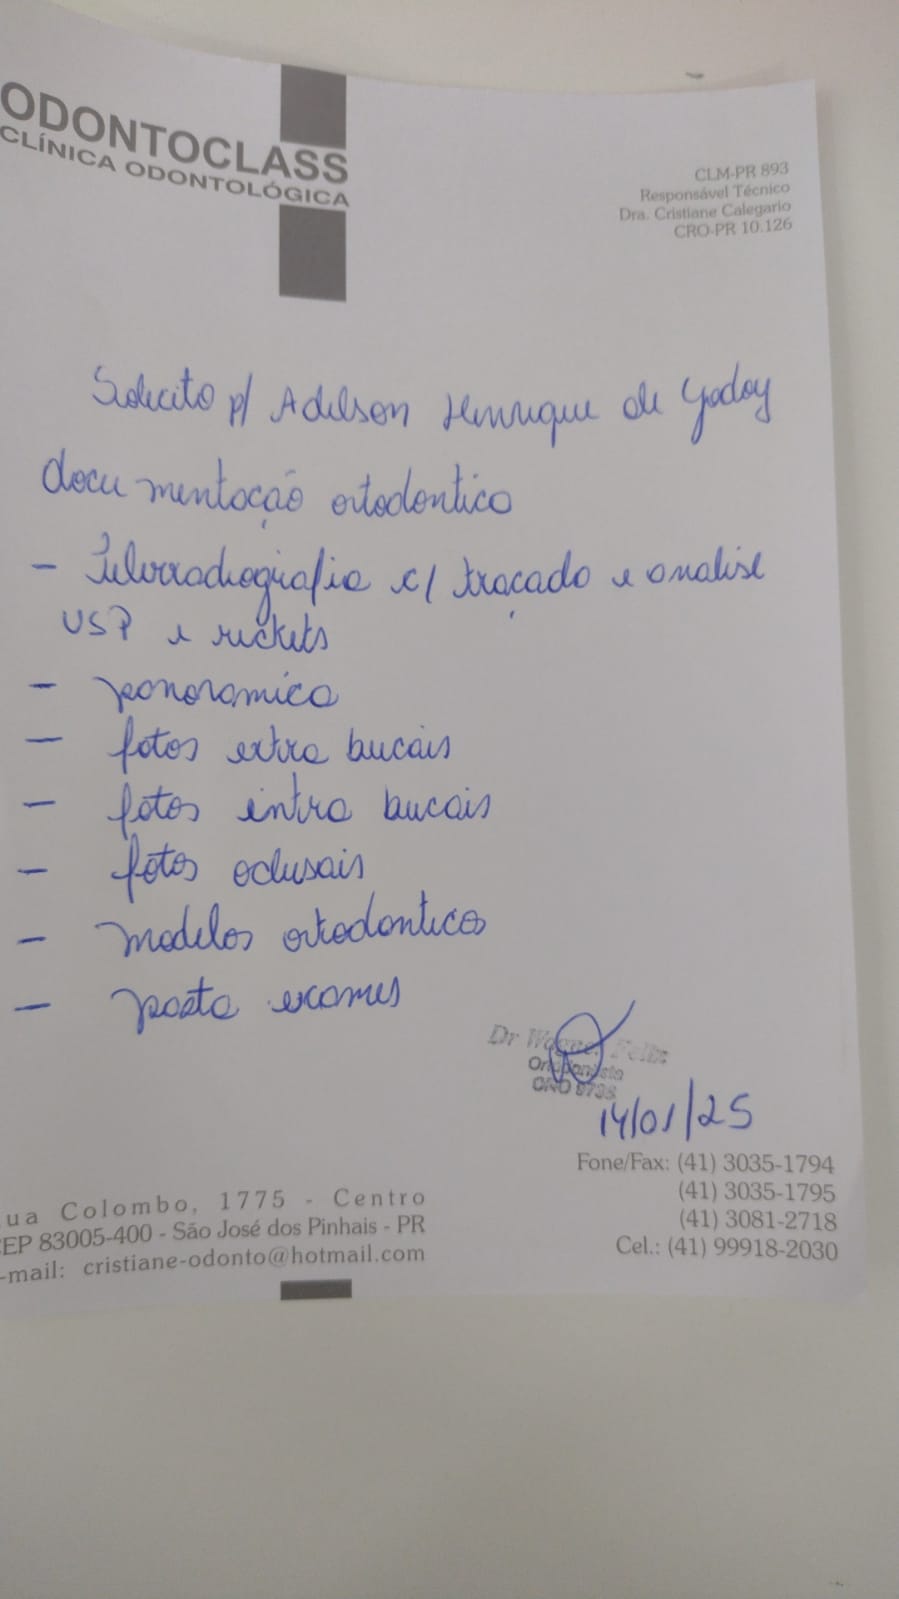 ODONTOCLASS
CLÍNICA ODONTOLÓGICA
CLM-PR 893
Responsável Técnico
Dra. Cristiane Calegario
CRO-PR 10.126
Solicito p/ Adilson Henrique de Godoy
documentação ortodontico
- Telerradiografia c/ traçado e analise
USP e rickets
- panoramica
- fotos extra bucais
- fotos intra bucais
- fotos oclusais
- modelos ortodonticos
- pasta exames
Dr Wagner Felix
Ortodontista
CRO
14/01/25
Fone/Fax: (41) 3035-1794
(41) 3035-1795
(41) 3081-2718
Cel.: (41) 99918-2030
ua Colombo, 1775 - Centro
CEP 83005-400 - São José dos Pinhais - PR
-mail: cristiane-odonto@hotmail.com